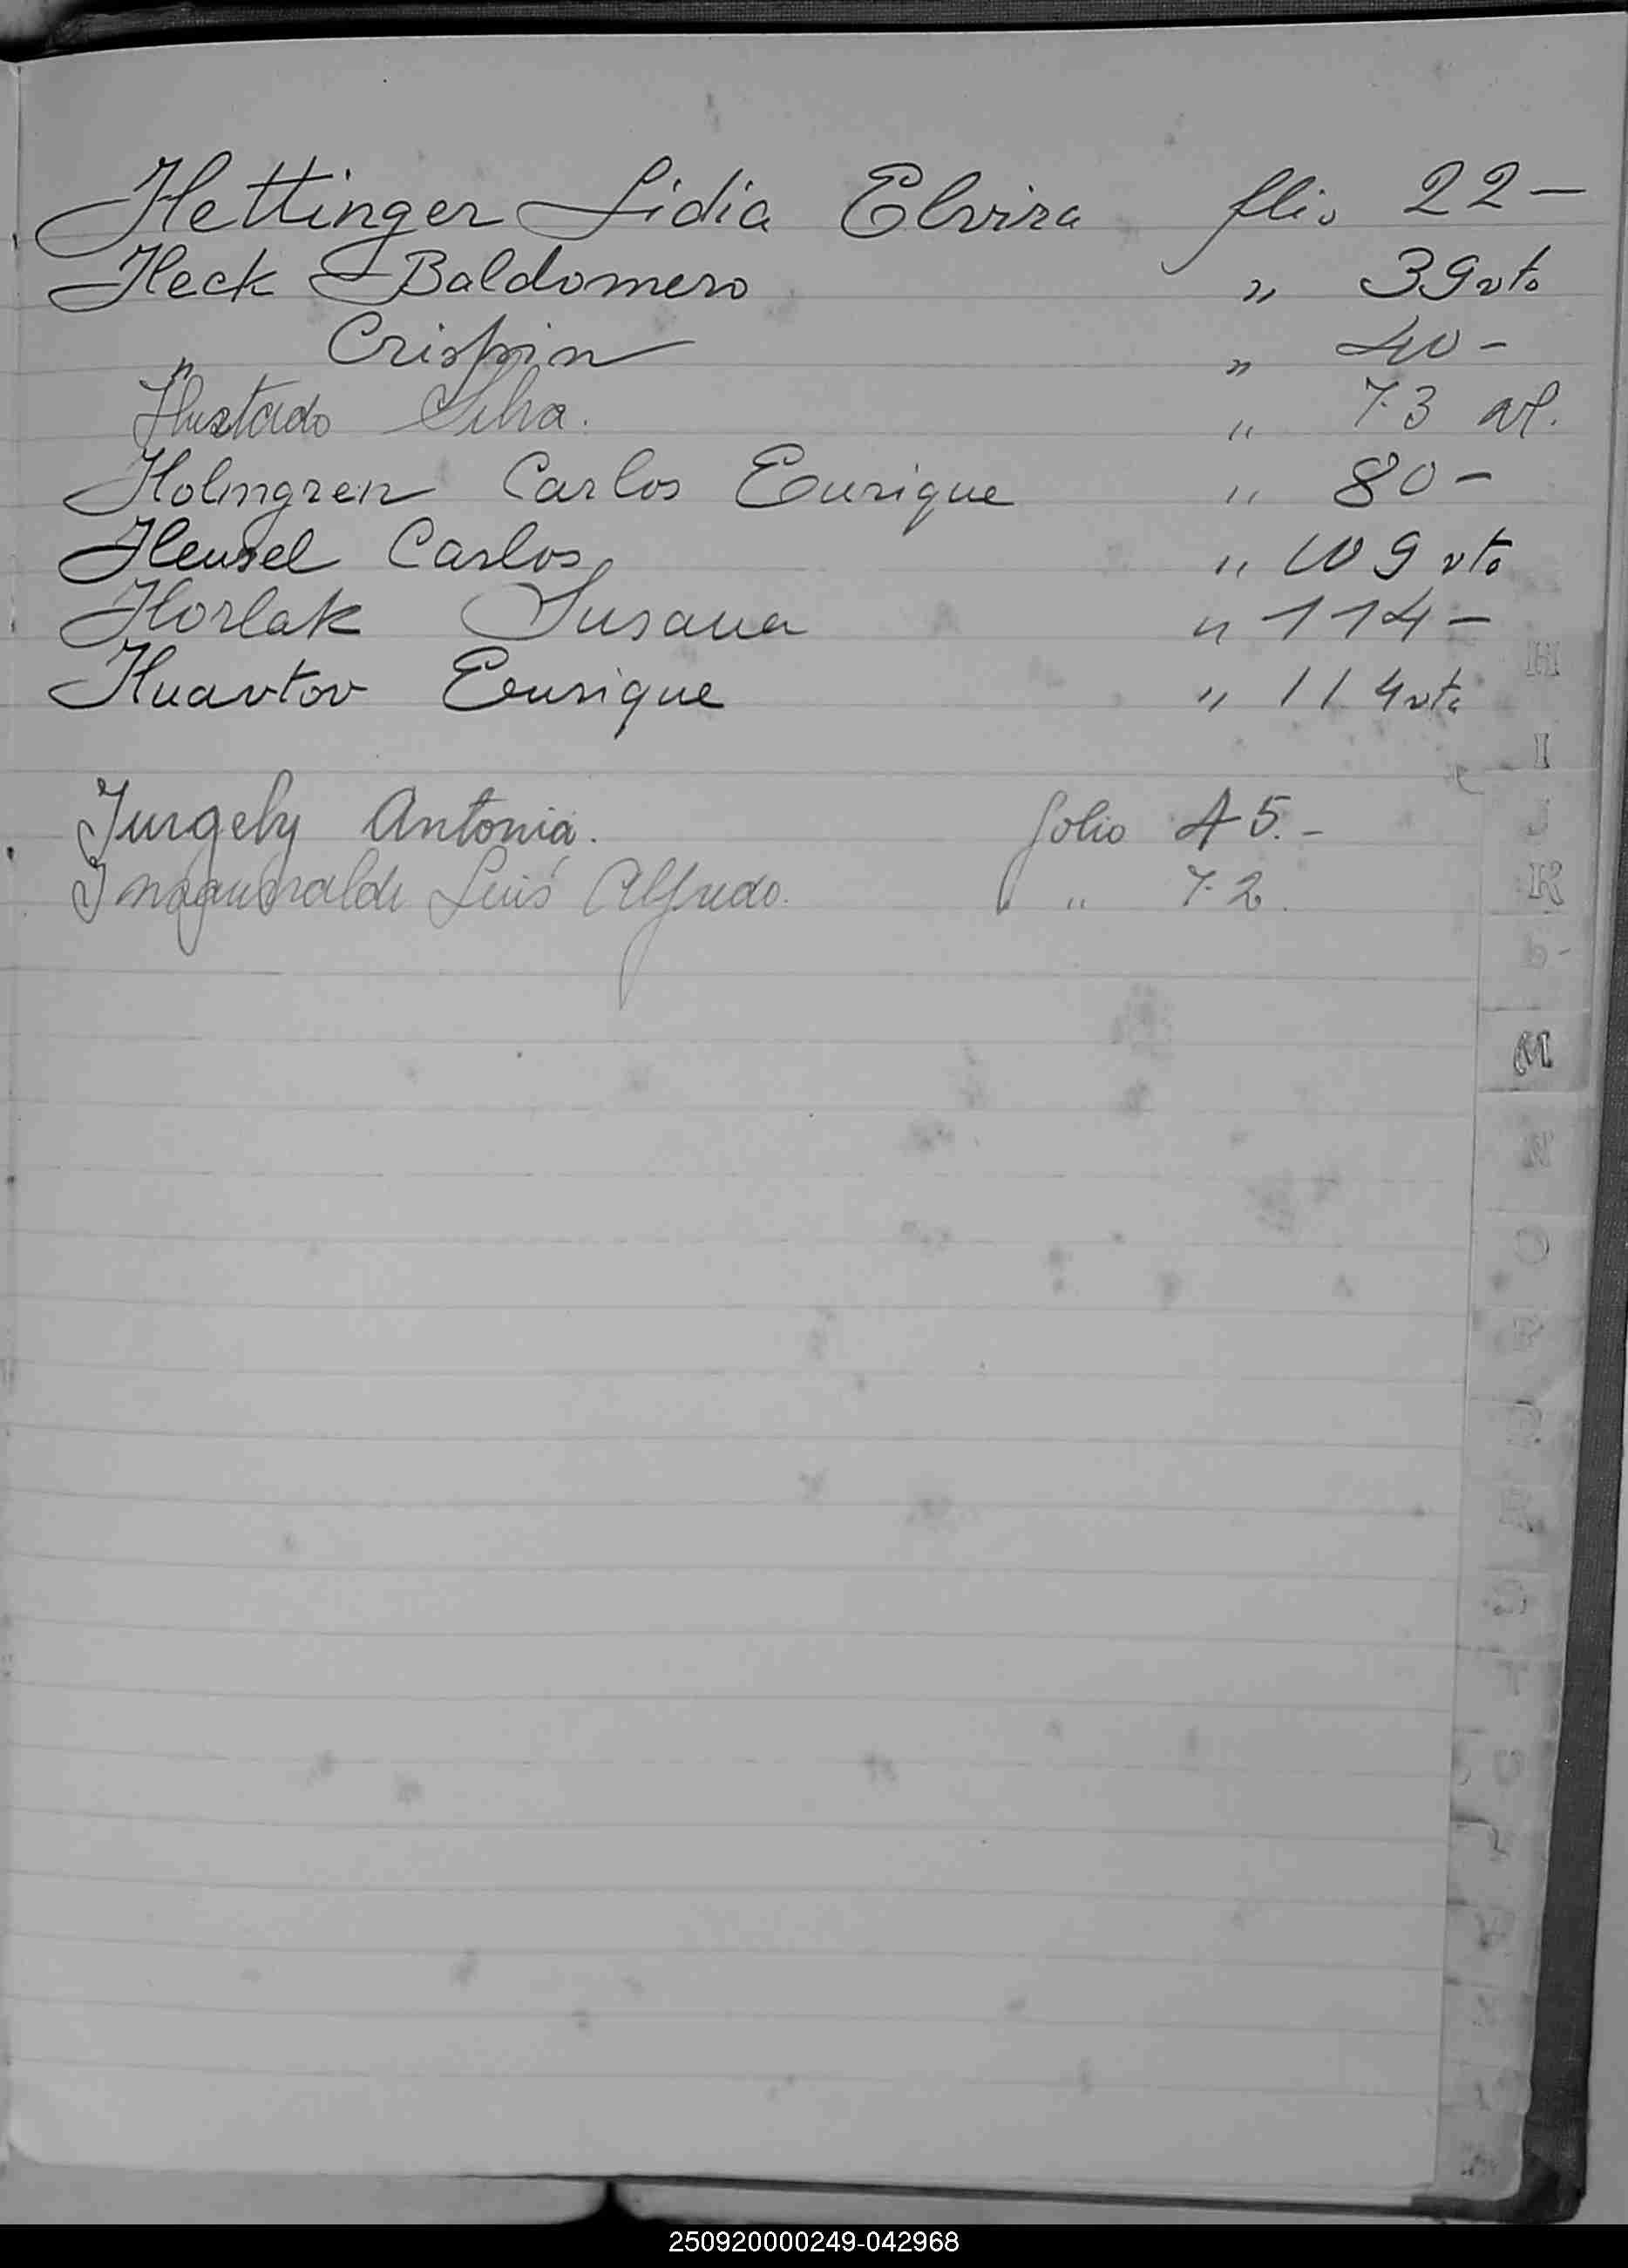 Hettinger Lidia Elvira flio 22 -
Heck Baldomero " 39 vto
" Crispin " 40 -
Hurtado Silva. " 73 vl.
Holmgren Carlos Enrique " 80 -
Hensel Carlos " 109 vto
Horlak Susana " 114 -
Huavtov Enrique " 114 vto
Jurgely Antonia. folio 45. -
Luis Alfredo. " 72.
H
I
J
K
M
N
O
T
250920000249-042968